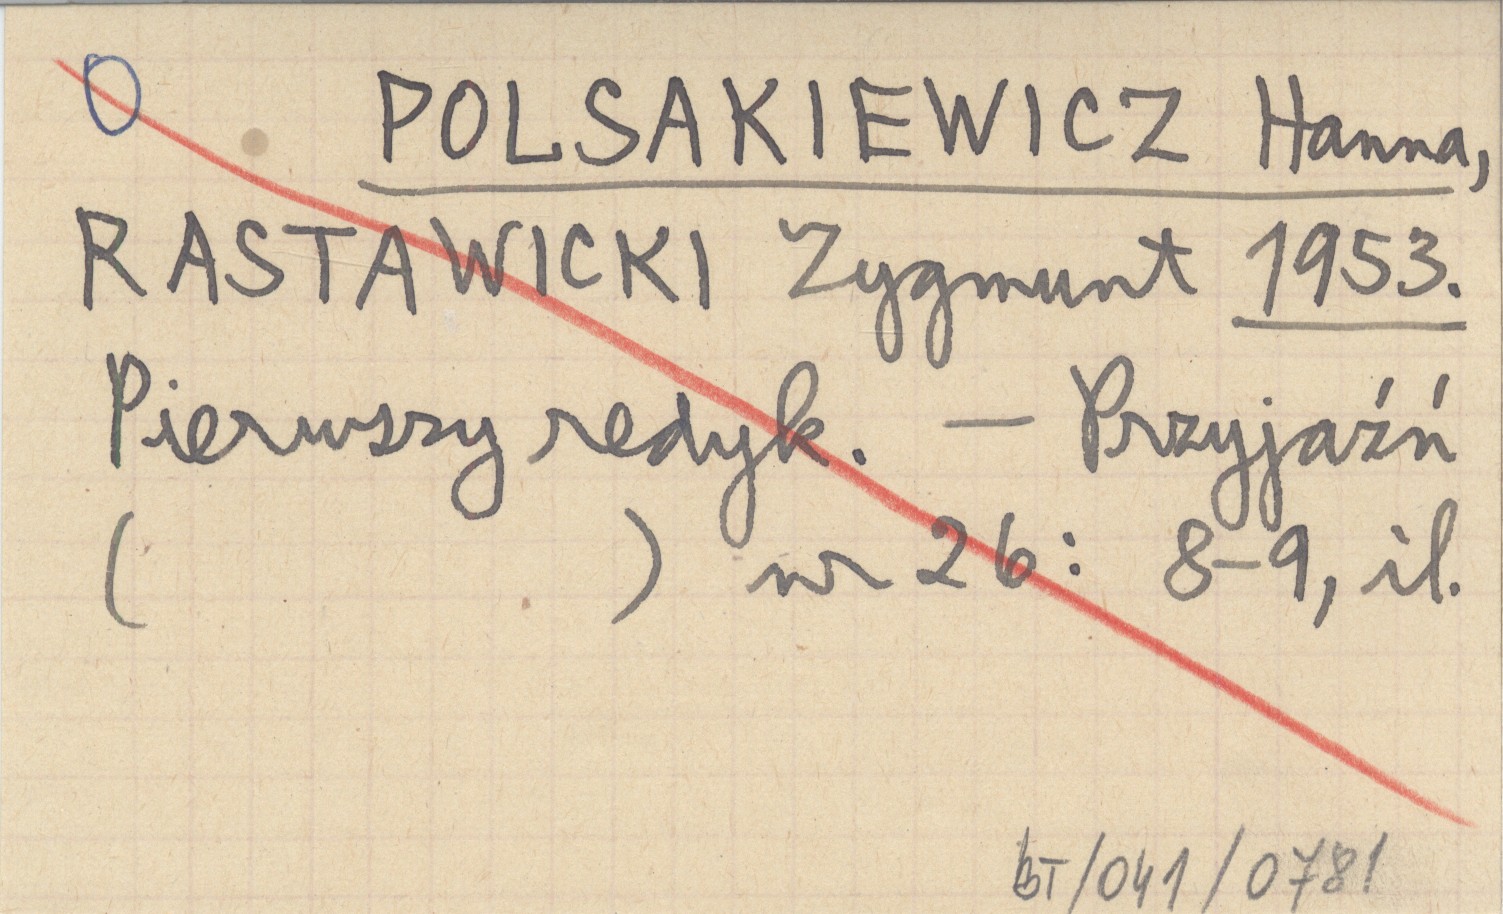 O POLSAKIEWICZ Hanna,
RASTAWICKI Zygmunt 1953.
Pierwszy redyk. — Przyjaźń
( ) nr 26: 8-9, il.
BT/041/0781